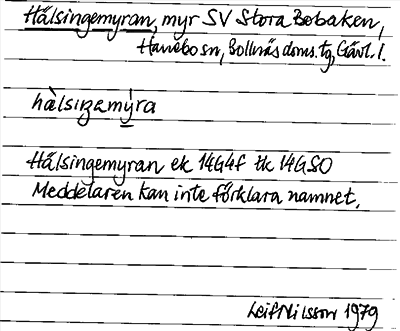 Hälsingemyran, myr SV Stora Bobaken,
Hanebo sn, Bollnäs doms. tg, Gävl. l.
hàlsiŋemýra
Hälsingemyran ek 14G4f tk 14GSO
Meddelaren kan inte förklara namnet.
Leif Nilsson 1979